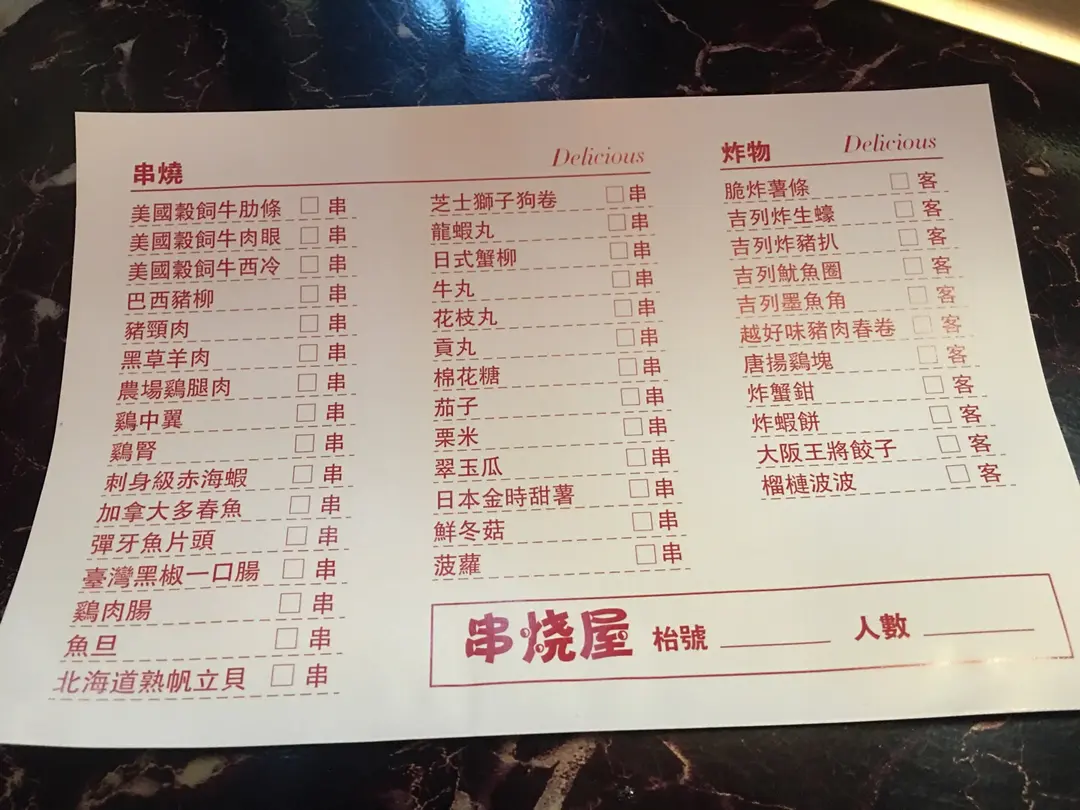 串燒 Delicious
美國穀飼牛肋條 □ 串
美國穀飼牛肉眼 □ 串
美國穀飼牛西冷 □ 串
巴西豬柳 □ 串
豬頸肉 □ 串
黑草羊肉 □ 串
農場鷄腿肉 □ 串
鷄中翼 □ 串
鷄腎 □ 串
刺身級赤海蝦 □ 串
加拿大多春魚 □ 串
彈牙魚片頭 □ 串
臺灣黑椒一口腸 □ 串
鷄肉腸 □ 串
魚旦 □ 串
北海道熟帆立貝 □ 串
芝士獅子狗卷 □ 串
龍蝦丸 □ 串
日式蟹柳 □ 串
牛丸 □ 串
花枝丸 □ 串
貢丸 □ 串
棉花糖 □ 串
茄子 □ 串
粟米 □ 串
翠玉瓜 □ 串
日本金時甜薯 □ 串
鮮冬菇 □ 串
菠蘿 □ 串
炸物 Delicious
脆炸薯條 □ 客
吉列炸生蠔 □ 客
吉列炸豬扒 □ 客
吉列魷魚圈 □ 客
吉列墨魚角 □ 客
越好味豬肉春卷 □ 客
唐揚鷄塊 □ 客
炸蟹鉗 □ 客
炸蝦餅 □ 客
大阪王將餃子 □ 客
榴槤波波 □ 客
串烧屋 枱號 人數